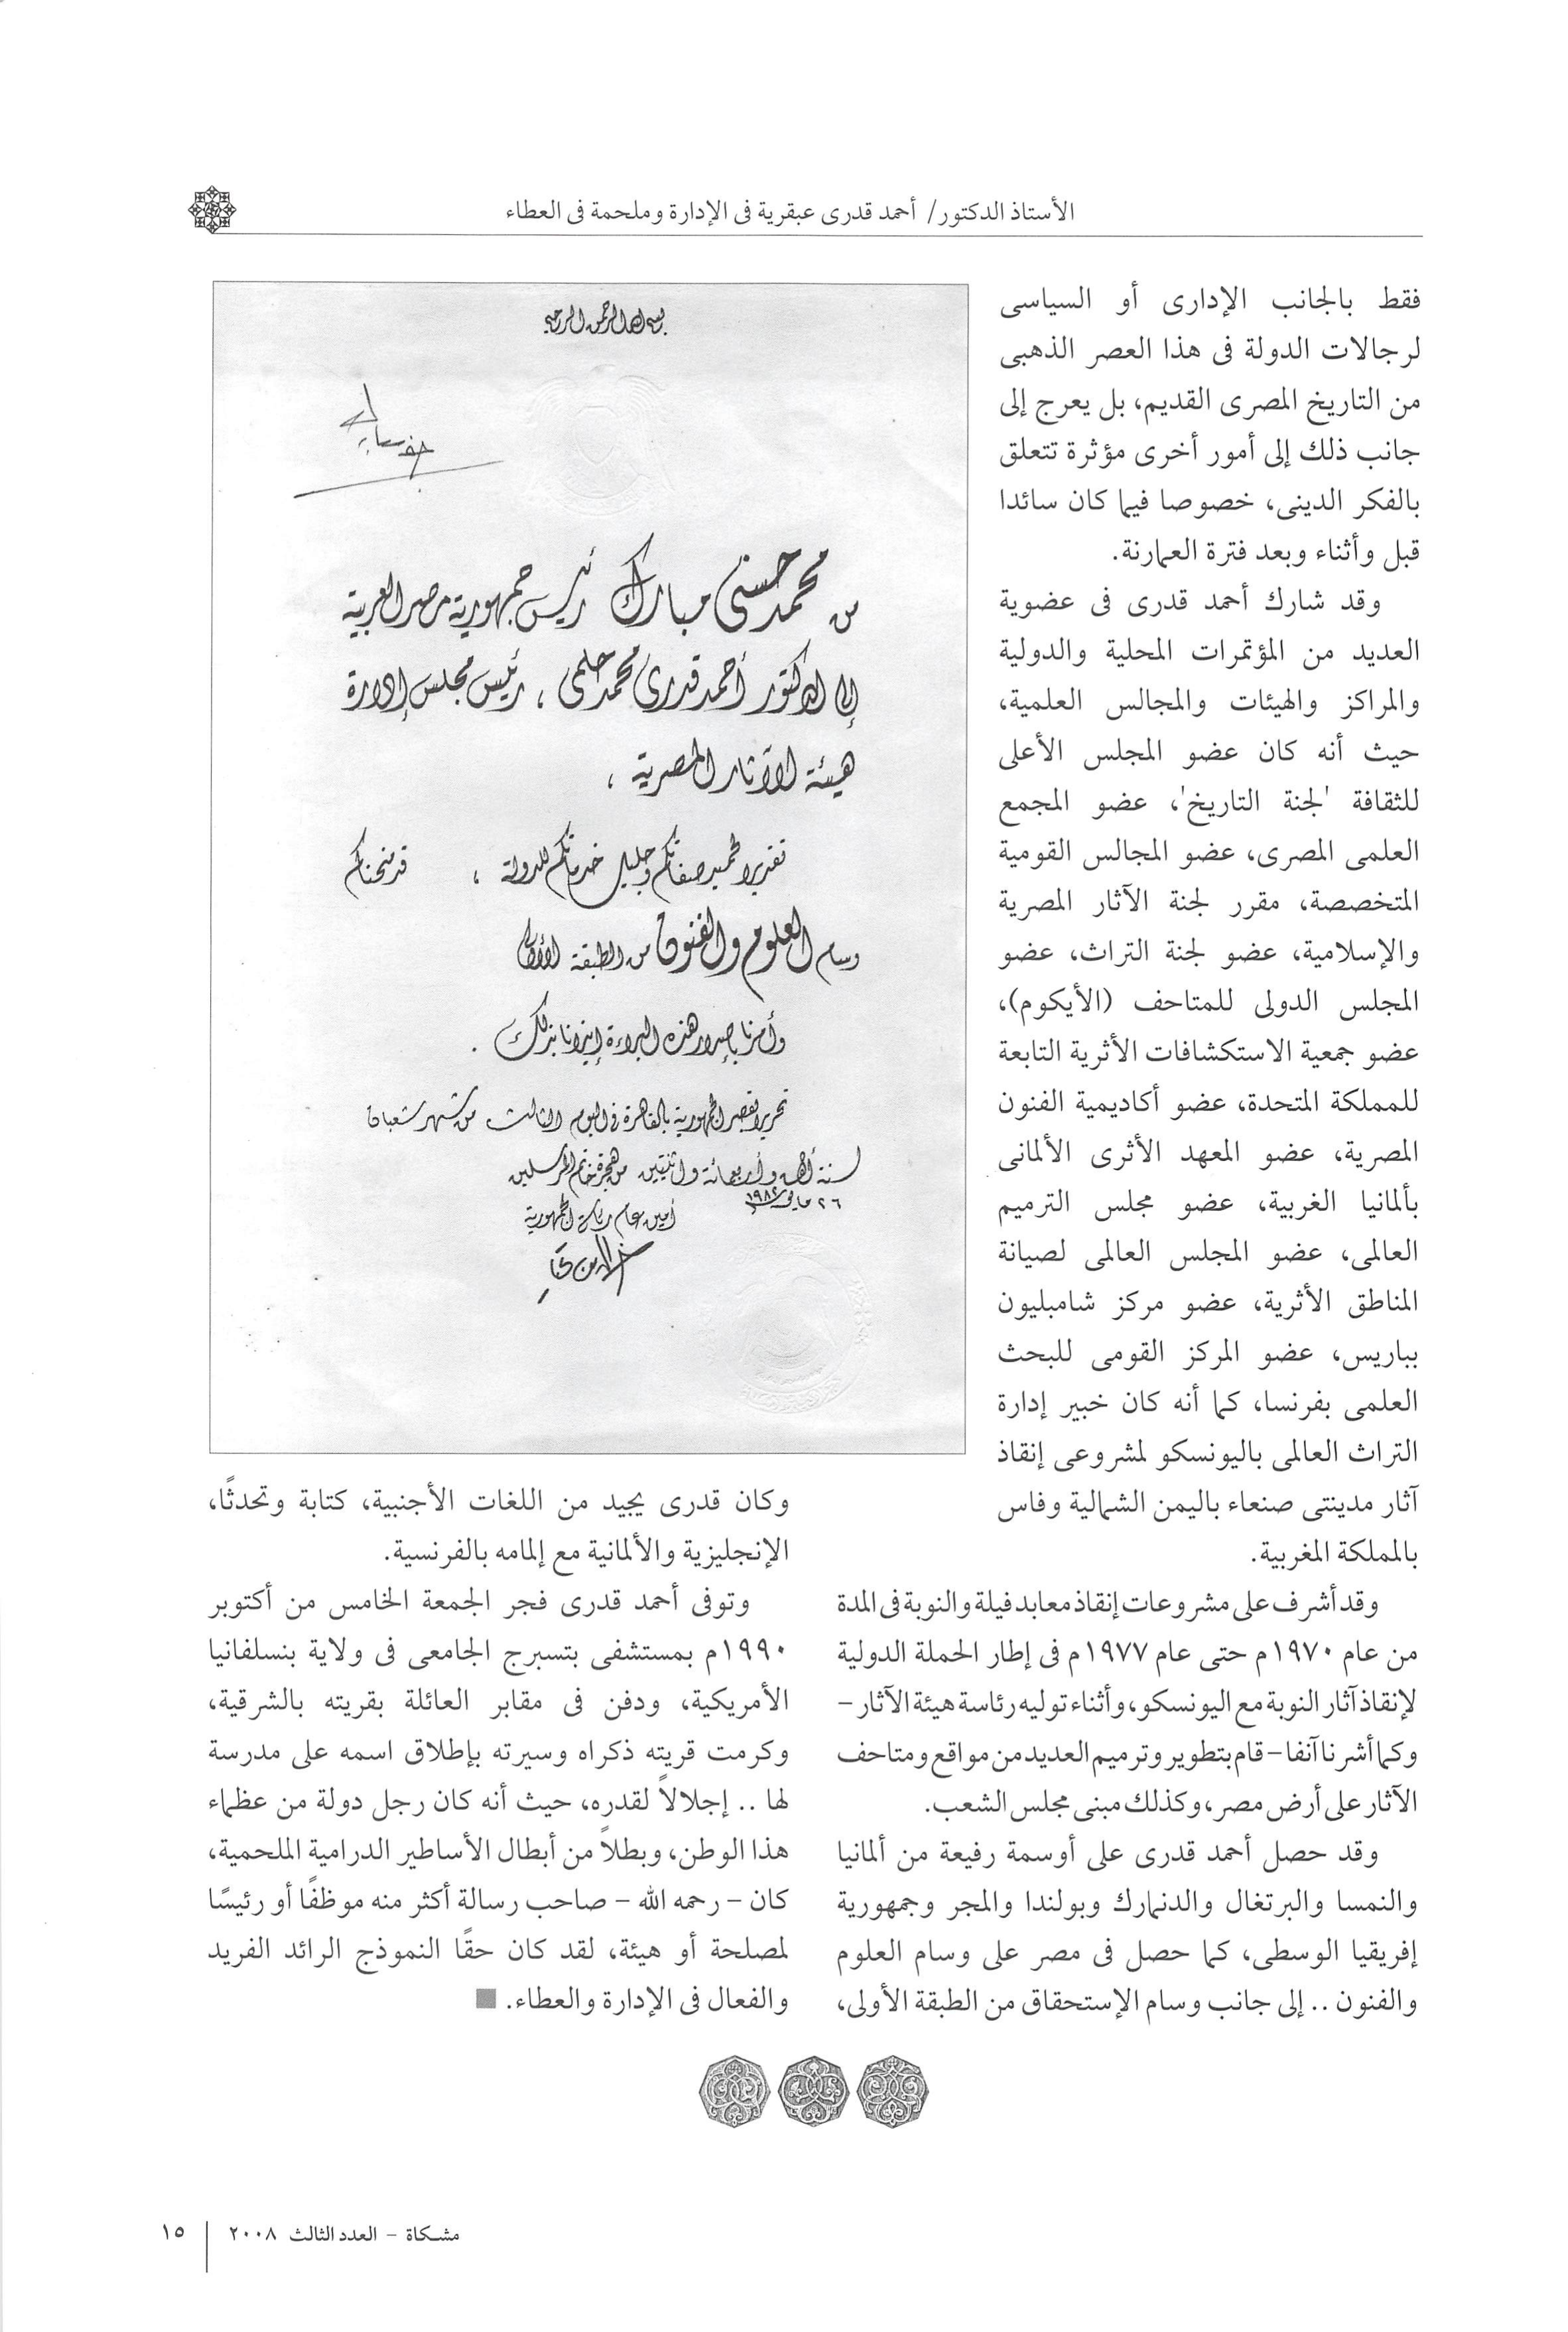 الأستاذ الدكتور/ أحمد قدرى عبقرية فى الإدارة وملحمة فى العطاء
فقط بالجانب الإدارى أو السياسى
لرجالات الدولة فى هذا العصر الذهبى
من التاريخ المصرى القديم، بل يعرج إلى
جانب ذلك إلى أمور أخرى مؤثرة تتعلق
بالفكر الدينى، خصوصا فيما كان سائدا
قبل وأثناء وبعد فترة العمارنة.
وقد شارك أحمد قدرى فى عضوية
العديد من المؤتمرات المحلية والدولية
والمراكز والهيئات والمجالس العلمية،
حيث أنه كان عضو المجلس الأعلى
للثقافة 'لجنة التاريخ'، عضو المجمع
العلمى المصرى، عضو المجالس القومية
المتخصصة، مقرر لجنة الآثار المصرية
والإسلامية، عضو لجنة التراث، عضو
المجلس الدولى للمتاحف (الأيكوم)،
عضو جمعية الاستكشافات الأثرية التابعة
للمملكة المتحدة، عضو أكاديمية الفنون
المصرية، عضو المعهد الأثرى الألمانى
بألمانيا الغربية، عضو مجلس الترميم
العالمى، عضو المجلس العالمى لصيانة
المناطق الأثرية، عضو مركز شامبليون
بباريس، عضو المركز القومى للبحث
العلمى بفرنسا، كما أنه كان خبير إدارة
التراث العالمى باليونسكو لمشروعى إنقاذ
آثار مدينتى صنعاء باليمن الشمالية وفاس
بالمملكة المغربية.
وقد أشرف على مشروعات إنقاذ معابد فيلة والنوبة فى المدة
من عام ١٩٧٠م حتى عام ١٩٧٧م فى إطار الحملة الدولية
لإنقاذ آثار النوبة مع اليونسكو، وأثناء توليه رئاسة هيئة الآثار –
وكما أشرنا آنفا – قام بتطوير وترميم العديد من مواقع ومتاحف
الآثار على أرض مصر، وكذلك مبنى مجلس الشعب.
وقد حصل أحمد قدرى على أوسمة رفيعة من ألمانيا
والنمسا والبرتغال والدنمارك وبولندا والمجر وجمهورية
إفريقيا الوسطى، كما حصل فى مصر على وسام العلوم
والفنون .. إلى جانب وسام الإستحقاق من الطبقة الأولى،
بسم الله الرحمن الرحيم
من محمد حسنى مبارك رئيس جمهورية مصر العربية
إلى الدكتور أحمد قدرى محمد حلمى ، رئيس مجلس إدارة
هيئة الآثار المصرية ،
تقديرا لحميد صفاتكم وجليل خدماتكم للدولة ، قد منحناكم
وسام العلوم والفنون من الطبقة الأولى
وأمرنا بإصدار هذه البراءة إيذانا بذلك .
تحريرا بقصر الجمهورية بالقاهرة فى اليوم الثالث من شهر شعبان
لسنة ألف وأربعمائة واثنتين من هجرة خاتم المرسلين
٢٦ مايو ١٩٨٢
أمين عام رياسة الجمهورية
وكان قدرى يجيد من اللغات الأجنبية، كتابة وتحدثًا،
الإنجليزية والألمانية مع إلمامه بالفرنسية.
وتوفى أحمد قدرى فجر الجمعة الخامس من أكتوبر
١٩٩٠م بمستشفى بتسبرج الجامعى فى ولاية بنسلفانيا
الأمريكية، ودفن فى مقابر العائلة بقريته بالشرقية،
وكرمت قريته ذكراه وسيرته بإطلاق اسمه على مدرسة
لها .. إجلالاً لقدره، حيث أنه كان رجل دولة من عظماء
هذا الوطن، وبطلاً من أبطال الأساطير الدرامية الملحمية،
كان – رحمه الله – صاحب رسالة أكثر منه موظفًا أو رئيسًا
لمصلحة أو هيئة، لقد كان حقًا النموذج الرائد الفريد
والفعال فى الإدارة والعطاء.
مشكاة – العدد الثالث ٢٠٠٨ | ١٥